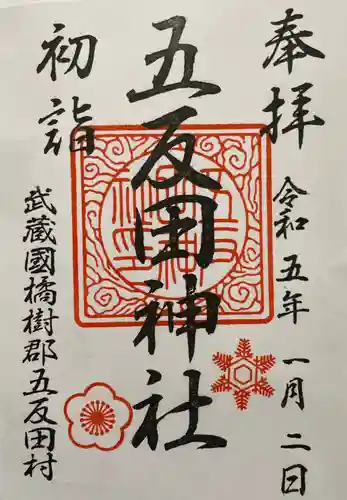 奉拝
令和五年 一月 二日
五反田神社
初詣
武蔵國橘樹郡五反田村